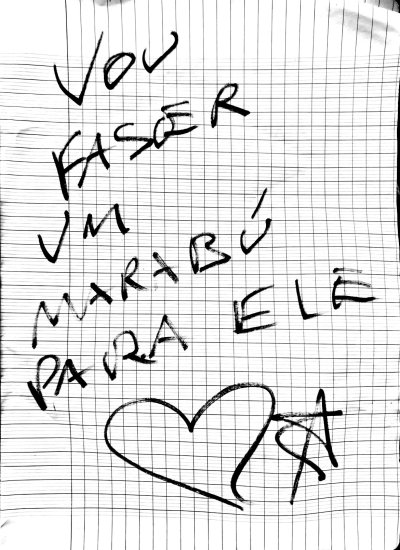 VOU
FASER
UM
MARABÚ
PARA ELE